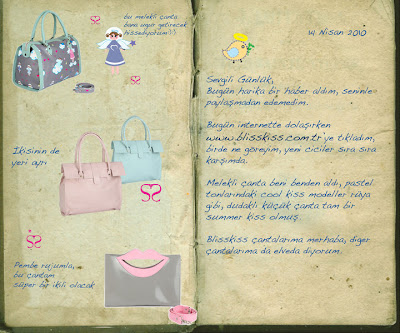 bu melekli çanta
bana uğur getirecek
hissediyorum:)
İkisinin de
yeri ayrı
Pembe rujumla,
bu çantam
süper bir ikili olacak
14 Nisan 2010
Sevgili Günlük,
Bugün harika bir haber aldım, seninle
paylaşmadan edemedim.
Bugün internette dolaşırken
www.blisskiss.com.tr ye tıkladım,
birde ne göreyim, yeni ciciler sıra sıra
karşımda.
Melekli çanta beni benden aldı, pastel
tonlarındaki cool kiss modeller rüya
gibi, dudaklı küçük çanta tam bir
summer kiss olmuş.
Blisskiss çantalarıma merhaba, diğer
çantalarıma da elveda diyorum.